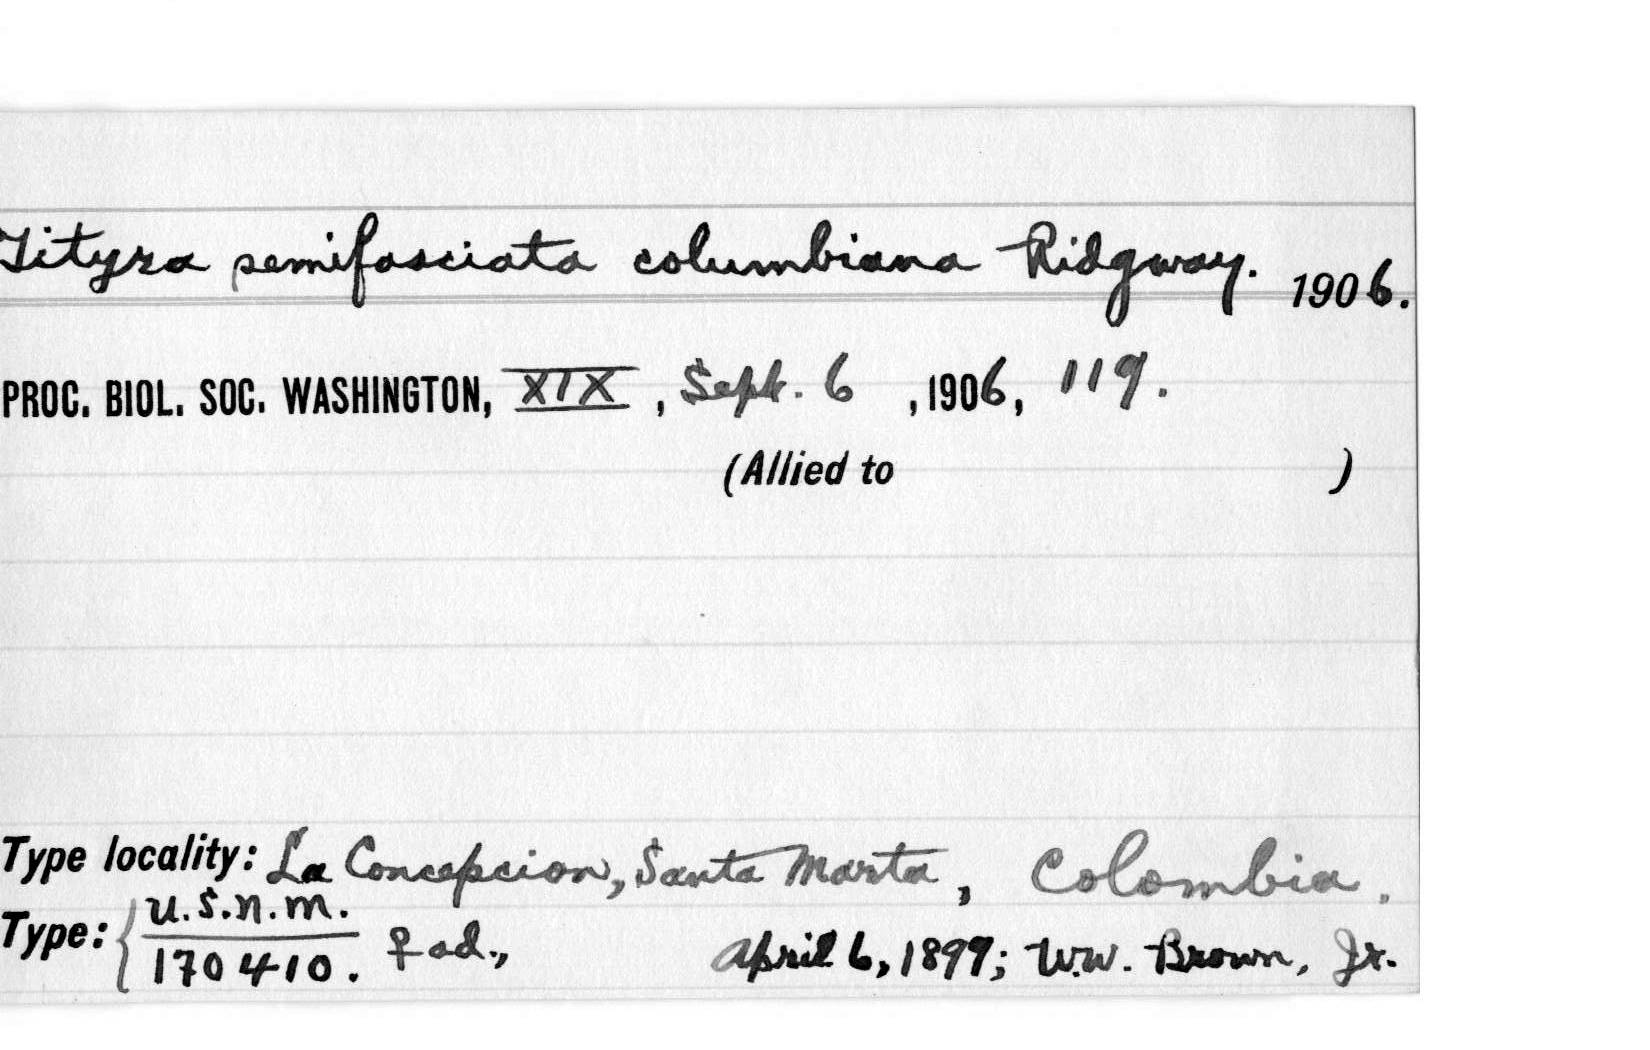 Tityra semifasciata columbiana Ridgway. 1906.
PROC. BIOL. SOC. WASHINGTON, XIX, Sept. 6, 1906, 119.
(Allied to )
Type locality: La Concepcion, Santa Marta, Colombia.
Type: { U.S.N.M.
170410. ♀ ad., April 6, 1899; W.W. Brown, Jr.